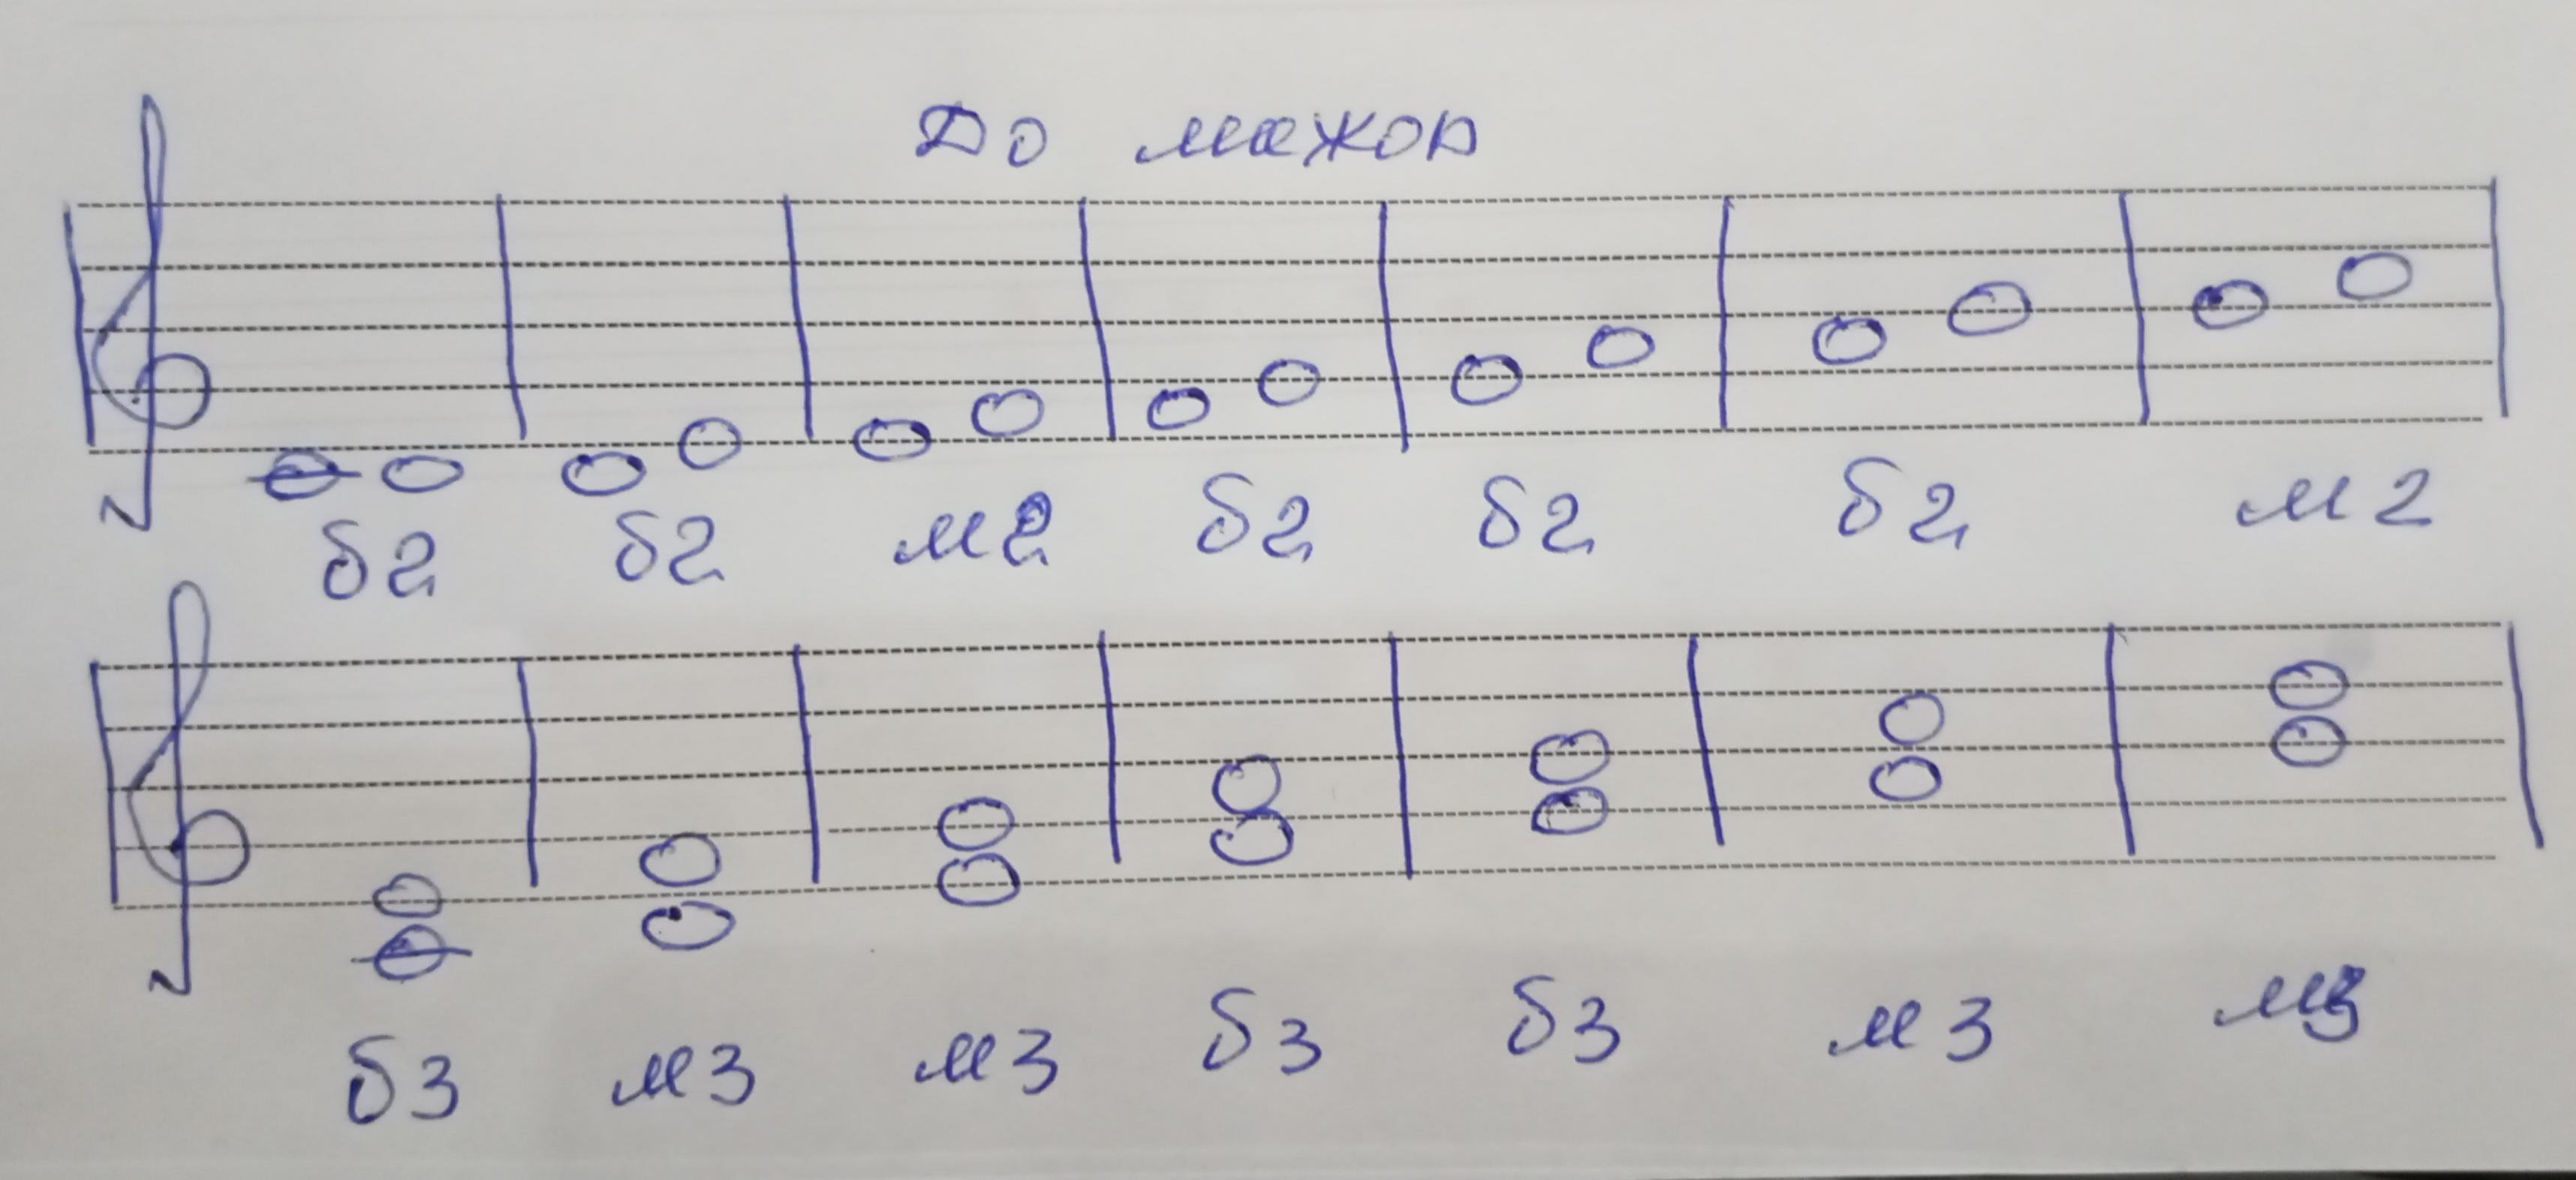 До мажор
б2 б2 м2 б2 б2 б2 м2
б3 м3 м3 б3 б3 м3 м3